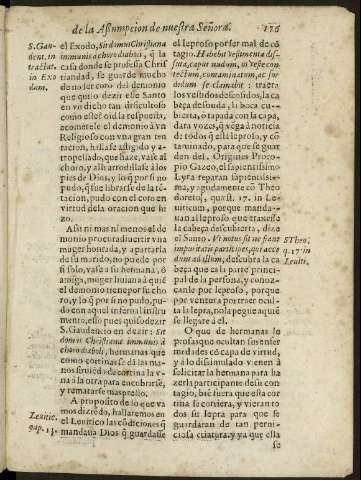 de la Assumpcion de nuestra Señora. 176
S. Gau-
dent. in
tractat.
in Exo
dum.
el Exodo, Sit domus Christiana
immunis à choro diaboli, q̃ la
casa donde se professa Christ
tiandad, se guarde mucho
de no ser coro del demonio
que quiso dezir este Santo
en vn dicho tan dificultoso
como este? oid la respuesta,
acomete le el demonio a vn
Religioso con vna gran ten
tacion, hallase afligido y a-
tropellado, que haze, vase al
choro, y alli arrodillase a los
pies de Dios, y lo q̃ por si no
pudo, q̃ fue librarse de la tē-
tacion, pudo con el coro en
virtud de la oracion que hi
zo.
Assi ni mas ni menos el de
monio procura divertir vna
muger honrada, y apartarla
de su marido, no puede por
si solo, vase a su hermana, ò
amiga, muger liuiana à que
el demonio tiene por su cho
ro, y lo q̃ por si no pudo, pu-
do con aquel infernal instru
mento, esso pues quiso dezir
S. Gaudencio en dezir: Sit
domus Christiana immunis à
choro diaboli, hermanas que
como cortinas se dā las ma-
nos siruiēdo de cortina la v-
na à la otra para encubrirse,
y rematarse mas presto.
A proposito de lo que va
mos dizēdo, hallaremos en
el Leuitico las cōdiciones q̃
mandaua Dios q̃ guardasse
Leuitic.
cap. 13.
el leproso por ser mal de cō-
tagio. Habebit vestimenta dis-
suta, caput nudum, os veste con-
tectum, contaminatum, ac sor-
didum se clamabit: trayra
los vestidos descosidos, la ca
beça desnuda, la boca cu-
bierta, ò tapada con la capa,
dara vozes, q̃ vēga à noticia
de todos q̃ està leproso, y cō-
taminado, para que se guar
den del. Origines Proco-
pio Gazeo, el sapientissimo
Lyra reparan sapientissi-
ma, y agudamente cō Theo
doreto, quæst. 17. in Le-
uiticum, porque manda-
an al leproso que traxesse
la cabeça descubierta, dize
el Santo. Vt notus sit ne fiant
imprudenti participes, qui acce
dunt ad illum, descubra la ca
beça que es la parte princi-
pal de la persona, y cono-
zanle por leproso, porque
por ventura por traer ocul-
ta la lepra, no la pegue aqui è
se llegare à el.
S Theo.
q. 17. in
Leuitic.
O que de hermanas le
prosas que ocultan sus enfer
midades cō capa de virtud,
y à lo dissimulado vienen à
solicitar la hermana para ha
zerla participante de su con
tagio, biē fuera que esta cor
tina se corriera, y vieran to
dos su lepra para que se
guardaran de tan perni-
ciosa criatura, y ya que ella
se